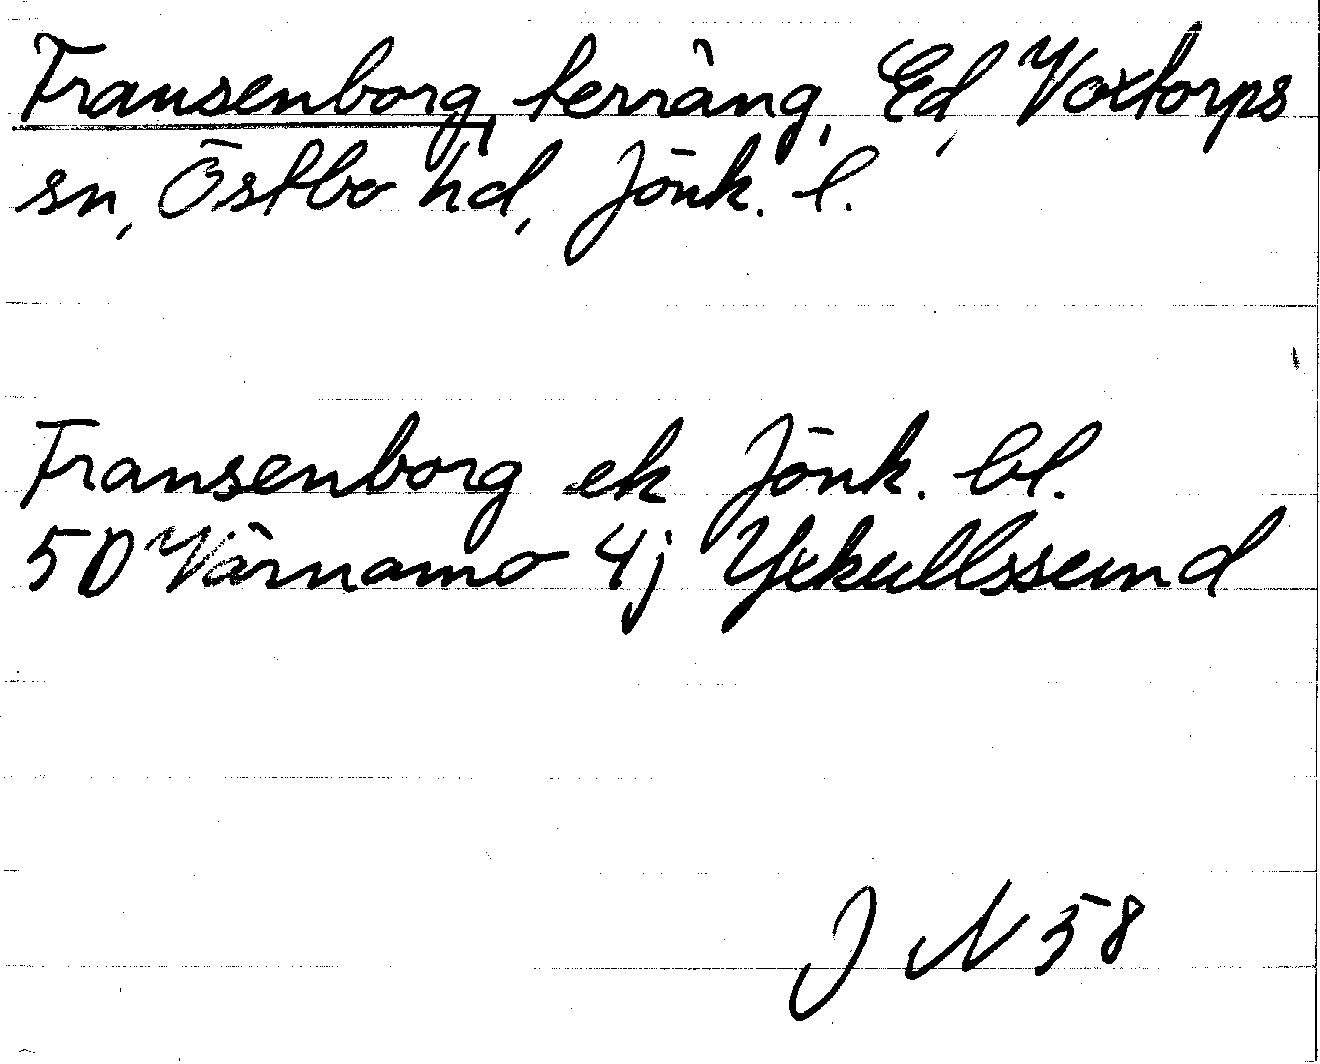 Fransenborg, terräng, Ed, Voxtorps
sn, Östbo hd, Jönk. l.
Fransenborg ek Jönk. bl.
5D Värnamo 4j Yxkullssund
J N 58